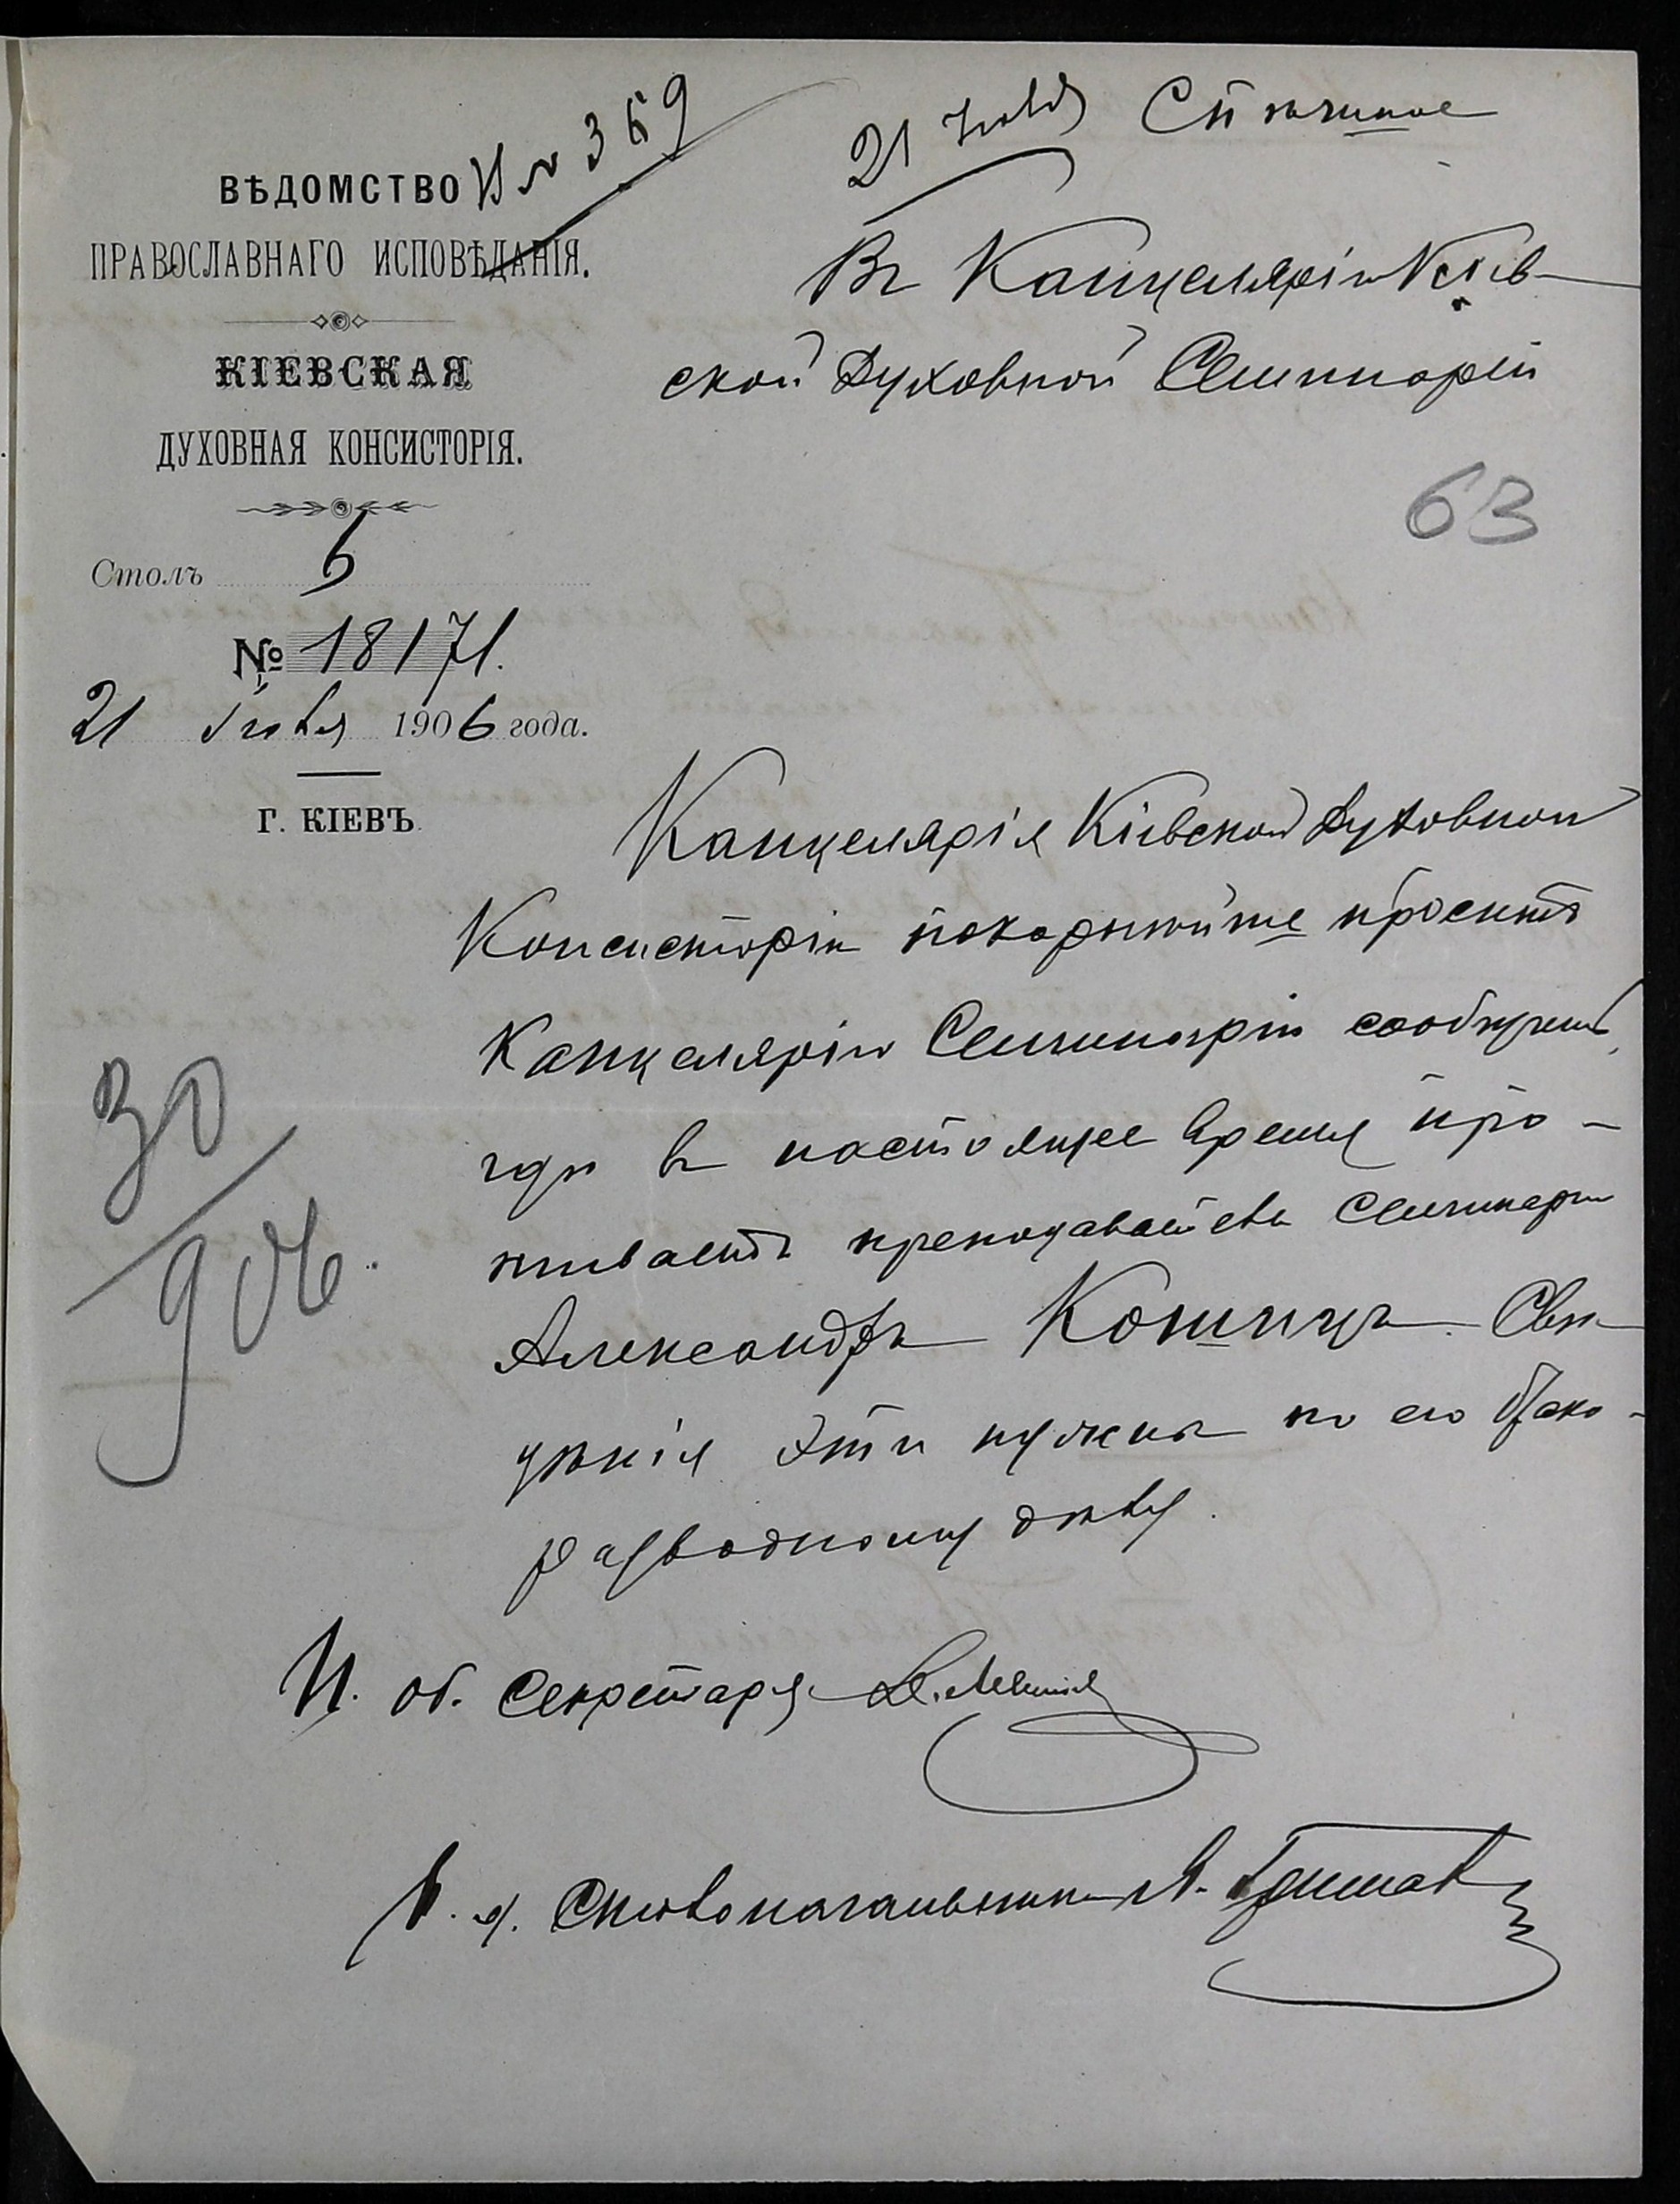 Вх № 369
21 Іюля Спѣшное
ВѢДОМСТВО
ПРАВОСЛАВНАГО ИСПОВѢДАНІЯ.
КІЕВСКАЯ
ДУХОВНАЯ КОНСИСТОРІЯ.
Столъ 6
№ 18171.
21 Іюля 1906 года.
Г. КІЕВЪ.
Въ Канцелярію Кіев-
ской Духовной Семинаріи
63
Канцелярія Кіевской Духовной
Консисторіи покорнѣйше проситъ
Канцелярію Семинаріи сообщить,
гдѣ въ настоящее время про-
живаетъ преподаватель Семинаріи
Александръ Кошицъ. Свѣ-
дѣнія эти нужны по его брако-
разводному дѣлу.
30/906.
И. об. Секретаря
В. д. Столоначальника